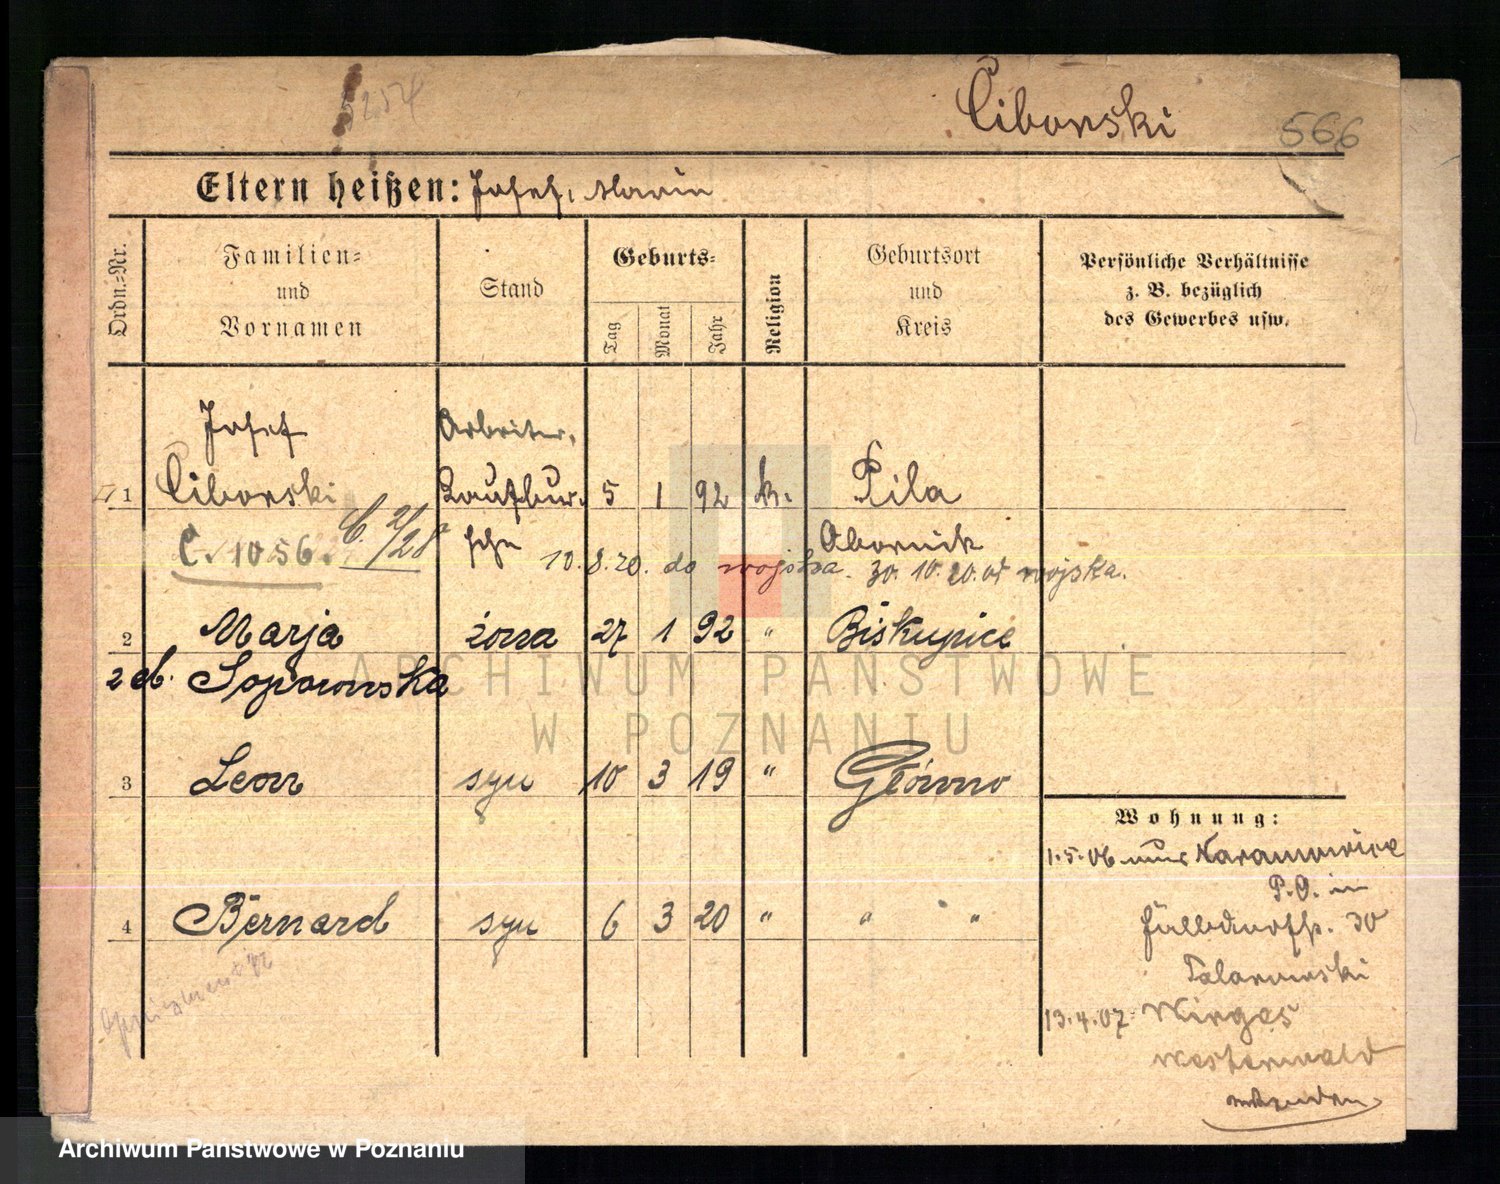 5254
Ciborski
566
Eltern heißen: Josef, Maria
Ordn.-Nr.
Familien-
und
Vornamen
Stand
Geburts-
Tag
Monat
Jahr
Religion
Geburtsort
und
Kreis
Persönliche Verhältnisse
z. B. bezüglich
des Gewerbes usw.
Josef Arbeiter,
1 Ciborski Laufbur- 5 1 92 k. Pila
C. 1056. sche Obornik
10.8.20. do wojska. 30.10.20. od wojska.
2 Marja żona 27 1 92 " Biskupice
2 Sopowska
3 Leon syn 10 3 19 " Główno
4 Bernard syn 6 3 20 " " "
Wohnung:
1.5.06 Naramowice
P.O. in
30
13.4.07 Wirges
Westerwald
ARCHIWUM PAŃSTWOWE
W POZNANIU
Archiwum Państwowe w Poznaniu